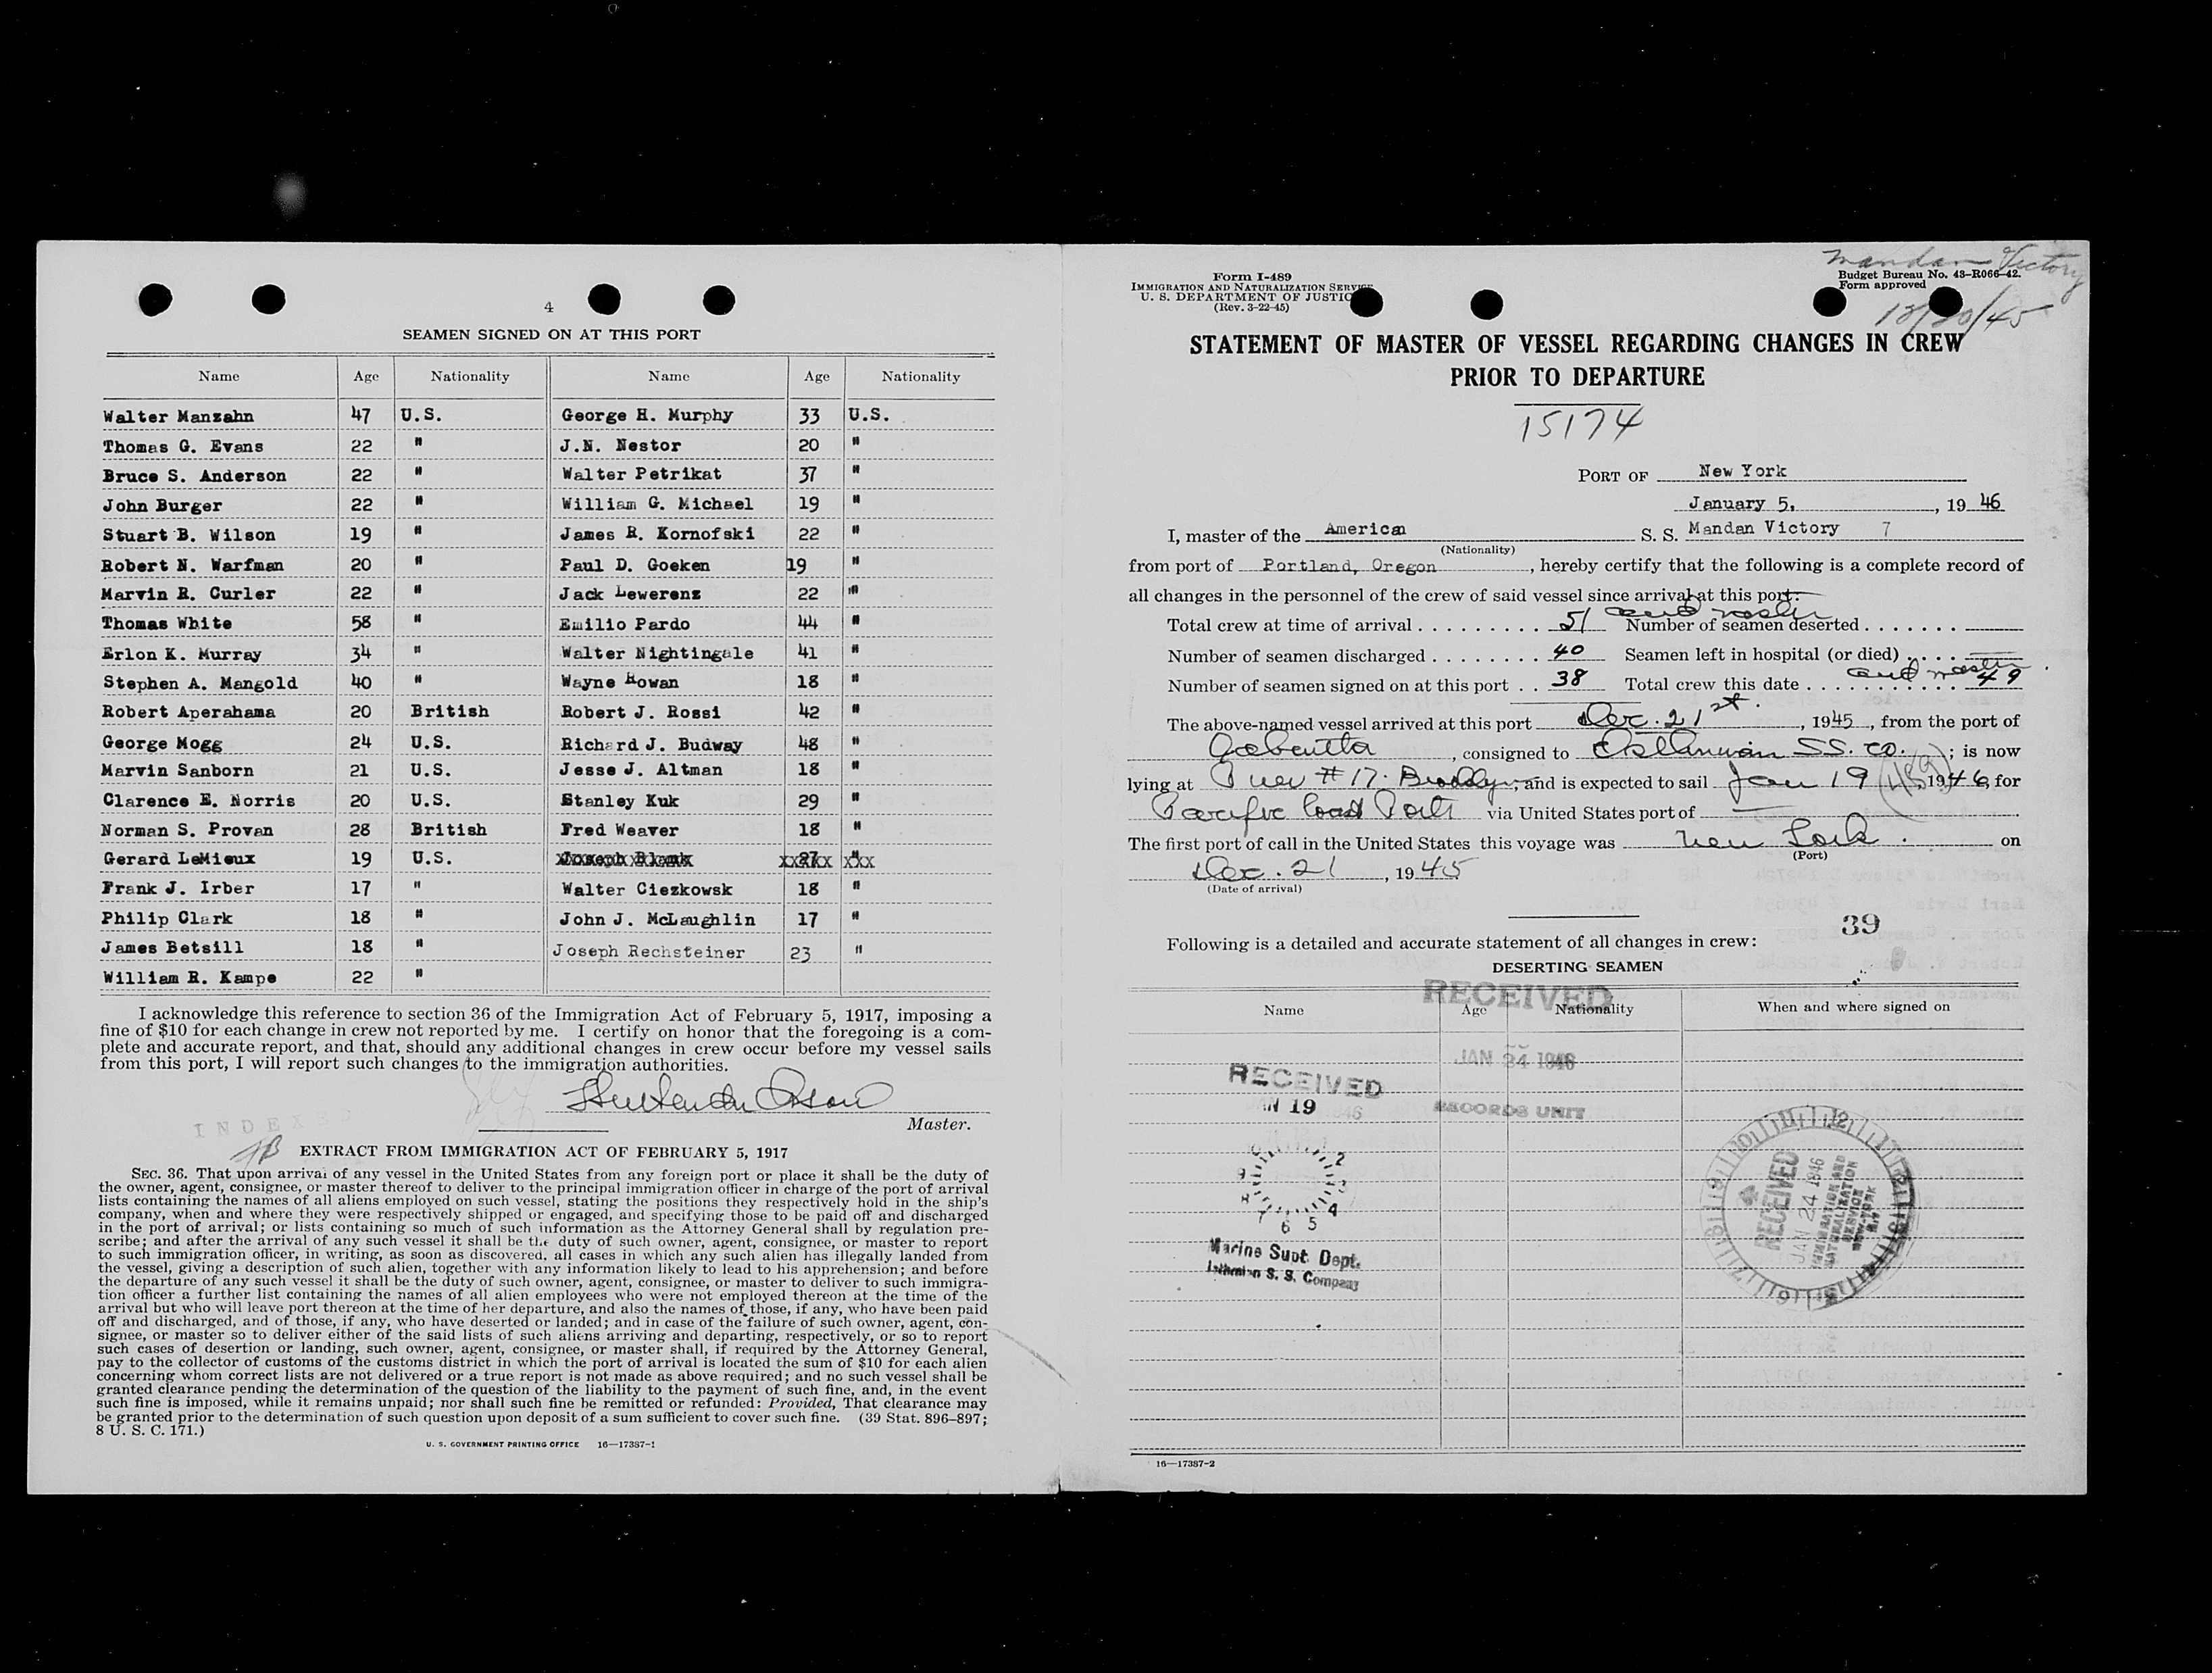 4
SEAMEN SIGNED ON AT THIS PORT
Name Age Nationality Name Age Nationality
Walter Manzahn 47 U.S. George H. Murphy 33 U.S.
Thomas G. Evans 22 " J.N. Nestor 20 "
Bruce S. Anderson 22 " Walter Petrikat 37 "
John Burger 22 " William G. Michael 19 "
Stuart B. Wilson 19 " James R. Kornofski 22 "
Robert N. Warfman 20 " Paul D. Goeken 19 "
Marvin R. Curler 22 " Jack Lewerenz 22 "
Thomas White 58 " Emilio Pardo 44 "
Erlon K. Murray 34 " Walter Nightingale 41 "
Stephen A. Mangold 40 " Wayne Rowan 18 "
Robert Aperahama 20 British Robert J. Rossi 42 "
George Mogg 24 U.S. Richard J. Budway 48 "
Marvin Sanborn 21 U.S. Jesse J. Altman 18 "
Clarence E. Norris 20 U.S. Stanley Kuk 29 "
Norman S. Provan 28 British Fred Weaver 18 "
Gerard LeMieux 19 U.S.
Frank J. Irber 17 " Walter Ciezkowsk 18 "
Philip Clark 18 " John J. McLaughlin 17 "
James Betsill 18 " Joseph Rechsteiner 23 "
William R. Kampe 22 "
I acknowledge this reference to section 36 of the Immigration Act of February 5, 1917, imposing a
fine of $10 for each change in crew not reported by me. I certify on honor that the foregoing is a com-
plete and accurate report, and that, should any additional changes in crew occur before my vessel sails
from this port, I will report such changes to the immigration authorities.
Master.
INDEXED
EXTRACT FROM IMMIGRATION ACT OF FEBRUARY 5, 1917
SEC. 36. That upon arrival of any vessel in the United States from any foreign port or place it shall be the duty of
the owner, agent, consignee, or master thereof to deliver to the principal immigration officer in charge of the port of arrival
lists containing the names of all aliens employed on such vessel, stating the positions they respectively hold in the ship's
company, when and where they were respectively shipped or engaged, and specifying those to be paid off and discharged
in the port of arrival; or lists containing so much of such information as the Attorney General shall by regulation pre-
scribe; and after the arrival of any such vessel it shall be the duty of such owner, agent, consignee, or master to report
to such immigration officer, in writing, as soon as discovered, all cases in which any such alien has illegally landed from
the vessel, giving a description of such alien, together with any information likely to lead to his apprehension; and before
the departure of any such vessel it shall be the duty of such owner, agent, consignee, or master to deliver to such immigra-
tion officer a further list containing the names of all alien employees who were not employed thereon at the time of the
arrival but who will leave port thereon at the time of her departure, and also the names of those, if any, who have been paid
off and discharged, and of those, if any, who have deserted or landed; and in case of the failure of such owner, agent, con-
signee, or master so to deliver either of the said lists of such aliens arriving and departing, respectively, or so to report
such cases of desertion or landing, such owner, agent, consignee, or master shall, if required by the Attorney General,
pay to the collector of customs of the customs district in which the port of arrival is located the sum of $10 for each alien
concerning whom correct lists are not delivered or a true report is not made as above required; and no such vessel shall be
granted clearance pending the determination of the question of the liability to the payment of such fine, and, in the event
such fine is imposed, while it remains unpaid; nor shall such fine be remitted or refunded: Provided, That clearance may
be granted prior to the determination of such question upon deposit of a sum sufficient to cover such fine. (39 Stat. 896–897;
8 U. S. C. 171.)
U. S. GOVERNMENT PRINTING OFFICE 16—17387-1
Mandan Victory
Form I-489
IMMIGRATION AND NATURALIZATION SERVICE
U. S. DEPARTMENT OF JUSTICE
(Rev. 3-22-45)
Budget Bureau No. 43-R066-42.
Form approved
STATEMENT OF MASTER OF VESSEL REGARDING CHANGES IN CREW
PRIOR TO DEPARTURE
15174
PORT OF New York
January 5, , 19 46
I, master of the American S. S. Mandan Victory 7
(Nationality)
from port of Portland, Oregon , hereby certify that the following is a complete record of
all changes in the personnel of the crew of said vessel since arrival at this port:
and master
Total crew at time of arrival . . . . . . . . . . 51 Number of seamen deserted . . . . . . .
Number of seamen discharged . . . . . . . . 40 Seamen left in hospital (or died) . . . .
and master
Number of seamen signed on at this port . . 38 Total crew this date . . . . . . . . . . . 49
The above-named vessel arrived at this port Dec. 21st. , 1945 , from the port of
Calcutta , consigned to Isthmian SS. Co. ; is now
lying at Pier #17. Brooklyn, and is expected to sail Jan 19 (489), 1946, for
Pacific Coast Ports via United States port of
The first port of call in the United States this voyage was New York . on
(Port)
Dec. 21 , 1945
(Date of arrival)
39
Following is a detailed and accurate statement of all changes in crew:
DESERTING SEAMEN
RECEIVED
Name Age Nationality When and where signed on
JAN 24 1946
RECORDS UNIT
RECEIVED
JAN 19 1946
Marine Supt. Dept.
Isthmian S. S. Company
RECEIVED
JAN 24 1946
IMMIGRATION AND
NATURALIZATION
SERVICE
NEW YORK
N.Y.
16—17387-2